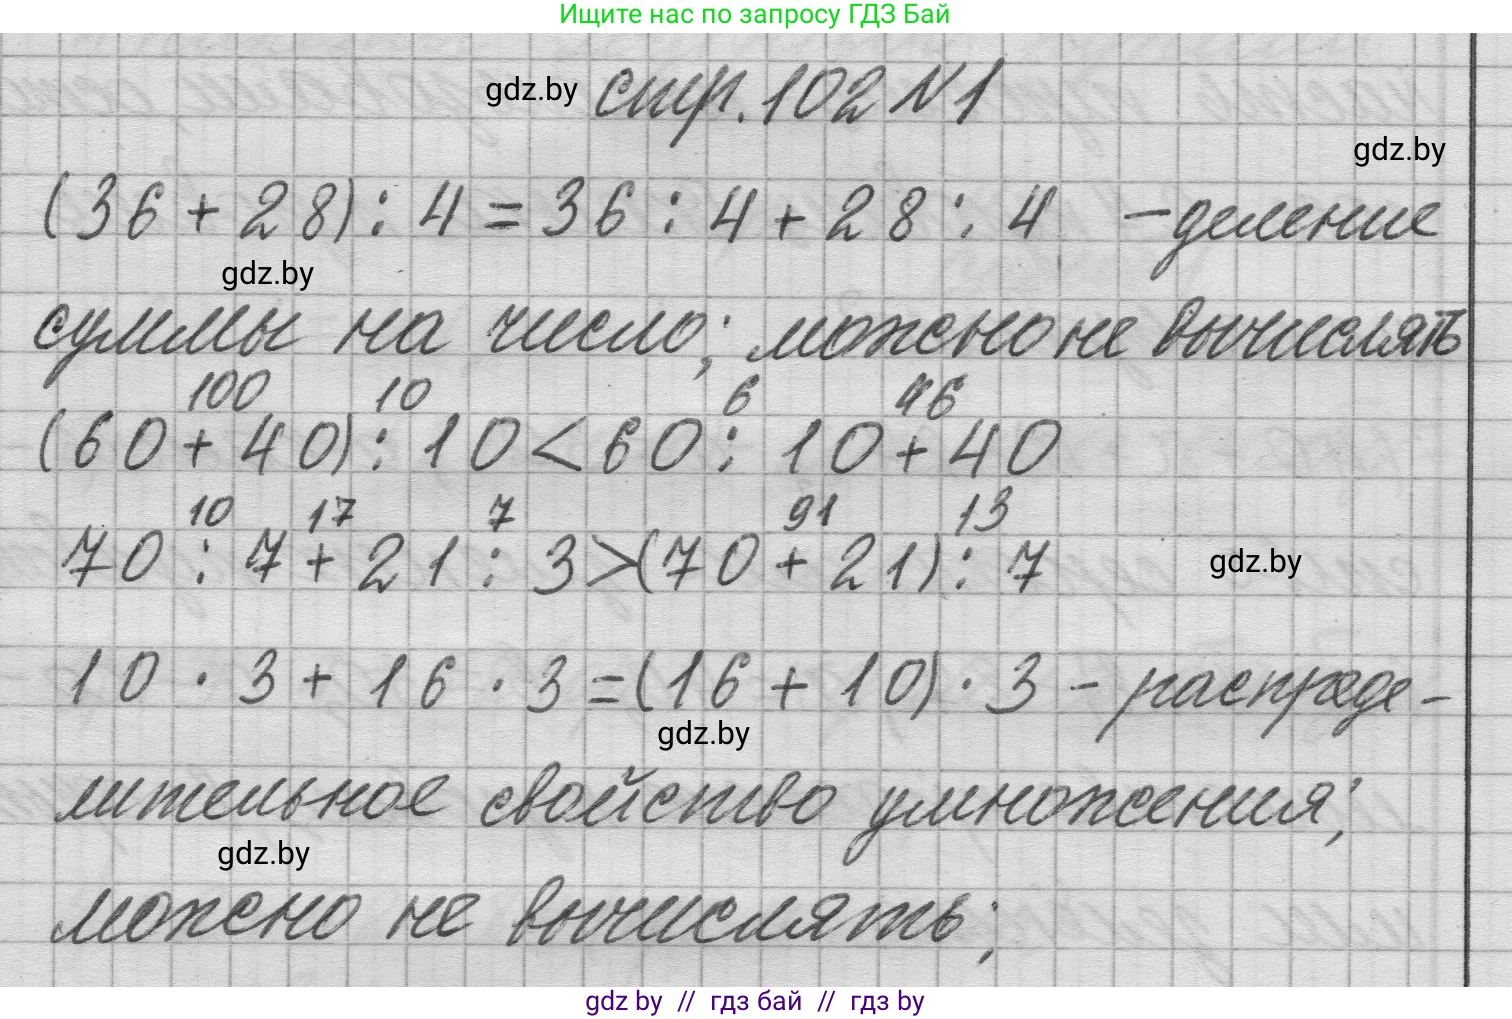 Ищите нас по запросу ГДЗ Бай
gdz.by стр. 102 №1
gdz.by
(36+28):4=36:4+28:4 - деление
gdz.by
суммы на число; можно не вычислять
100 10 6 46
(60+40):10<60:10+40
10 17 7 91 13
70:7+21:3>(70+21):7 gdz.by
10·3+16·3=(16+10)·3 - распреде-
gdz.by
лительное свойство умножения;
gdz.by
можно не вычислять;
gdz by // гдз бай // гдз by